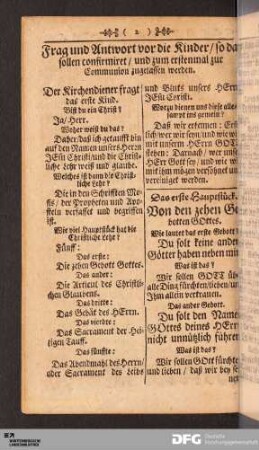 ( 2 )
Frag und Antwort vor die Kinder / so da
sollen confirmiret / und zum erstenmal zur
Communion zugelassen werden.
Der Kirchendiener fragt
das erste Kind.
Bist du ein Christ?
Ja / Herr.
Woher weist du das?
Daher: daß ich getaufft bin
auf den Namen unsers Herrn
JEsu Christi / und die Christ-
liche Lehr weiß und glaube.
Welches ist dann die Christ-
liche Lehr?
Die in den Schrifften Mo-
sis / der Propheten und Apo-
steln verfasset und begriffen
ist.
Wie viel Hauptstück hat die
Christliche Lehr?
Fünff:
Das erste:
Die zehen Gebott Gottes.
Das ander:
Die Articul des Christli-
chen Glaubens.
Das dritte:
Das Gebät des HErrn.
Das vierdte:
Das Sacrament der Hei-
ligen Tauff.
Das fünfte:
Das Abendmahl des Herrn /
oder Sacrament des Leibs
und Bluts unsers HErrn
JEsu Christi.
Worzu dienen uns diese alles
Daß wir erkennen: Erst-
lich / wer wir seyn / und wie wi
mit unserm HErrn GOTT
stehen: Darnach / wer uns
HErr Gott sey / und wie
mit uns handele.
Das erste Hauptstück.
Von den zehen Ge
botten GOttes.
Wie lautet das erste Gebott
Du solt keine ander
Götter haben neben mir
Was ist das?
Wir sollen GOTT üb
alle Ding fürchten / lieben / un
Ihm allein vertrauen.
Das ander Gebott.
Du solt den Name
GOttes deines HErr
nicht unnützlich führe
Was ist das?
Wir sollen GOtt fürchte
und lieben / daß wir bey se
WÜRTTEMBERGISCHE
LANDESBIBLIOTHEK
DFG Deutsche
Forschungsgemeinschaft